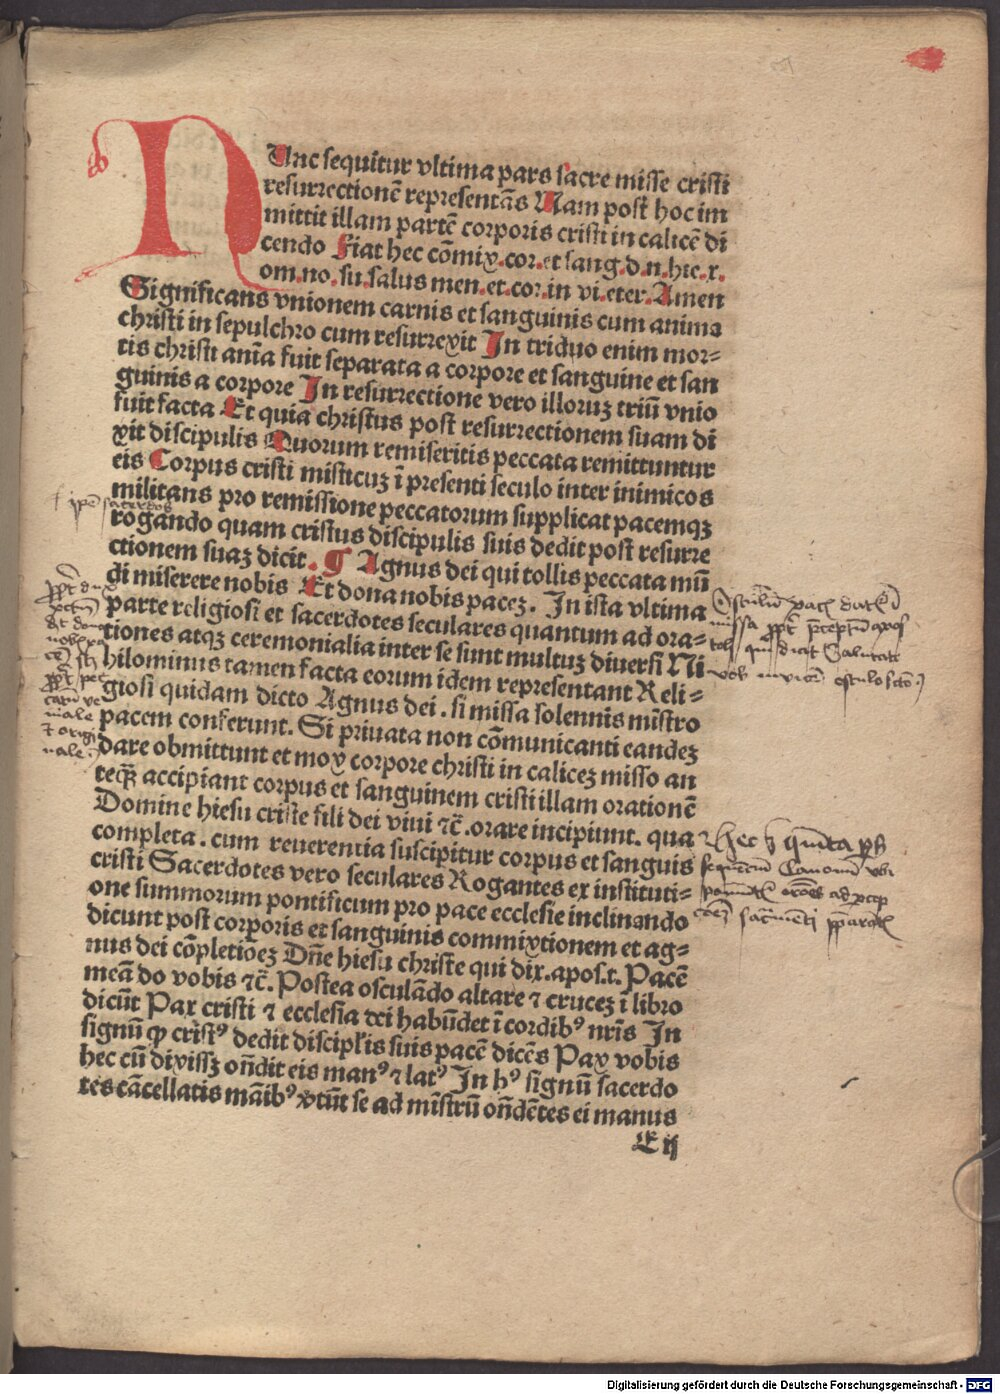 NUnc sequitur vltima pars sacre misse cristi
resurrectionē representās Nam post hoc im
mittit illam partē corporis cristi in calicē di
cendo Fiat hec cōmix.cor.et sang.d.n.hie.x.
om.no.su.salus men.et.cor.in vi.eter.Amen
Significans vnionem carnis et sanguinis cum anima
christi in sepulchro cum resurrexit In triduo enim mor⸗
tis christi anīa fuit separata a corpore et sanguine et san
guinis a corpore In resurrectione vero illoruꝫ triū vnio
fuit facta Et quia christus post resurrectionem suam di
xit discipulis Quorum remiseritis peccata remittuntur
eis Corpus cristi misticuꝫ ī presenti seculo inter inimicos
militans pro remissione peccatorum supplicat pacemqꝫ
rogando quam cristus discipulis suis dedit post resurre
ctionem suaꝫ dicit. ¶ Agnus dei qui tollis peccata mū
di miserere nobis Et dona nobis paceꝫ. In ista vltima
parte religiosi et sacerdotes seculares quantum ad ora⸗
tiones atqꝫ ceremonialia inter se sunt multuꝫ diuersi Ni
hilominus tamen facta eorum idem representant Reli⸗
giosi quidam dicto Agnus dei. si missa solennis mīstro
pacem conferunt. Si priuata non cōmunicanti eandeꝫ
dare obmittunt et mox corpore christi in caliceꝫ misso an
teqꝫ̄ accipiant corpus et sanguinem cristi illam orationē
Domine hiesu criste fili dei viui ⁊c̄.orare incipiunt. qua
completa. cum reuerentia suscipitur corpus et sanguis
cristi Sacerdotes vero seculares Rogantes ex instituti⸗
one summorum pontificum pro pace ecclesie inclinando
dicunt post corporis et sanguinis commixtionem et ag⸗
nus dei cōpletiōeꝫ Dn̄e hiesu christe qui dix.apos.t. Pacē
meā do vobis ⁊c̄. Postea osculādo altare ⁊ cruceꝫ ī libro
dicūt Pax cristi ⁊ ecclesia dei habūdet ī cordibꝰ nrīs In
signū ꝙ cristꝰ dedit discipl̄is suis pacē dicēs Pax vobis
hec cū dixissꝫ on̄dit eis manꝰ ⁊ latꝰ In hꝰ signū sacerdo
tes cācellatis māibꝰ v̄tūt se ad mīstrū on̄dētes ei manus
E ij
Digitalisierung gefördert durch die Deutsche Forschungsgemeinschaft - DFG